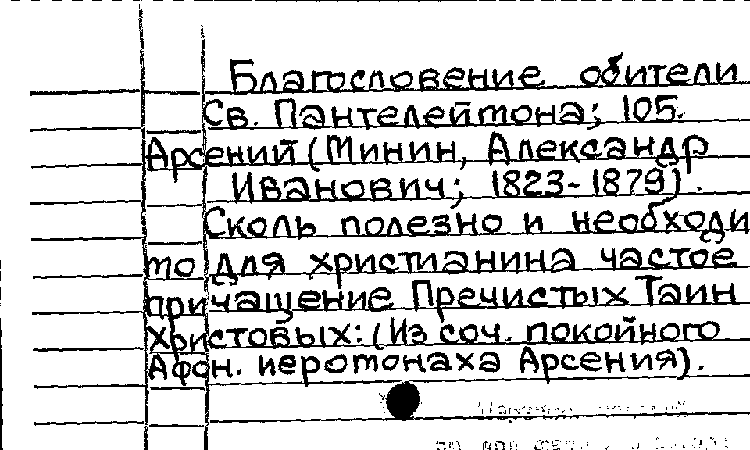 Благословение обители
Св. Пантелеймона; 105.
Арсений (Минин, Александр
Иванович; 1823-1879).
Сколь полезно и необходи
мо для христианина частое
причащение Пречистых Таин
Христовых: (Из соч. покойного
Афон. иеромонаха Арсения).